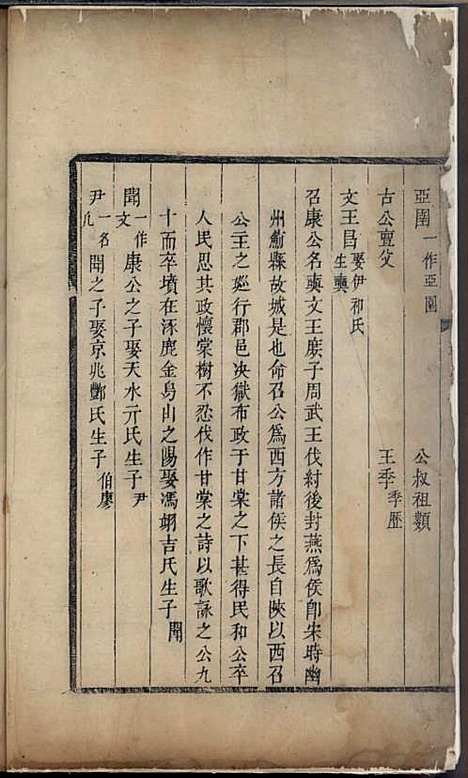 亞圉一作亞圄 公叔祖類
古公亶父 王季季歷
文王昌娶伊祁氏生奭
召康公名奭文王庶子周武王伐紂後封燕爲侯即宋時幽
州薊縣故城是也命召公爲西方諸侯之長自陝以西召
公主之廵行郡邑决獄布政于甘棠之下甚得民和公卒
人民思其政懷棠樹不忍伐作甘棠之詩以歌詠之公九
十而卒墳在涿鹿金島山之陽娶馮翊吉氏生子閒
閒一作文康公之子娶天水亓氏生子尹
尹一名凢閒之子娶京兆酆氏生子伯廖